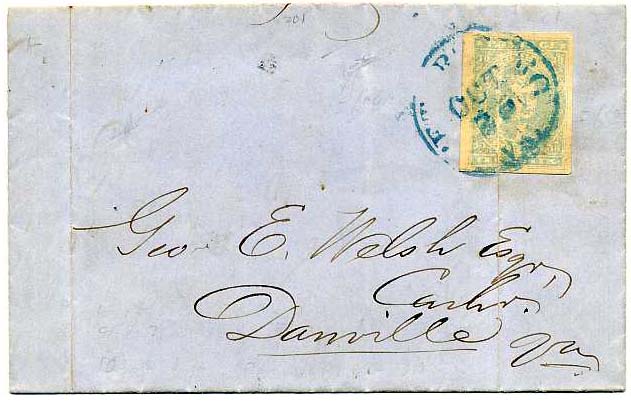 OCT
Geo E. Welsh Esqr,
Cashr.
Danville Va